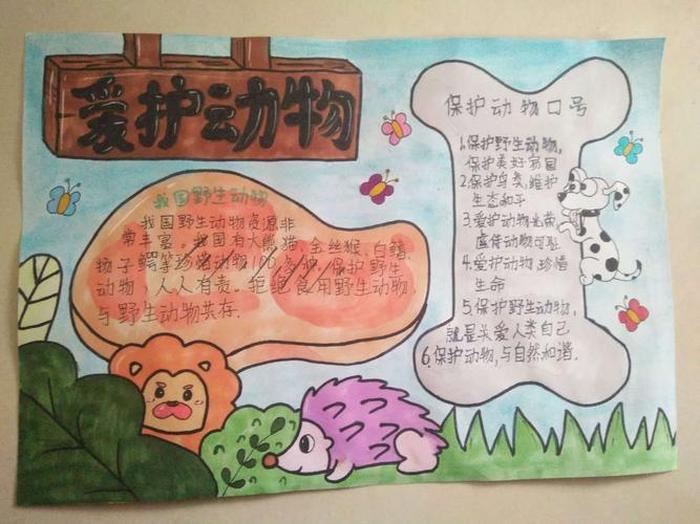 爱护动物
我国野生动物
我国野生动物资源非
常丰富。我国有大熊猫、金丝猴、白鳍
扬子鳄等珍稀动物100多种。保护野生
动物，人人有责。拒绝食用野生动物，
与野生动物共存.
保护动物口号
1.保护野生动物，
保护美好家园
2.保护鸟类，维护
生态和平
3.爱护动物光荣
虐待动物可耻
4.爱护动物 珍惜
生命
5.保护野生动物，
就是关爱人类自己
6.保护动物，与自然和谐.